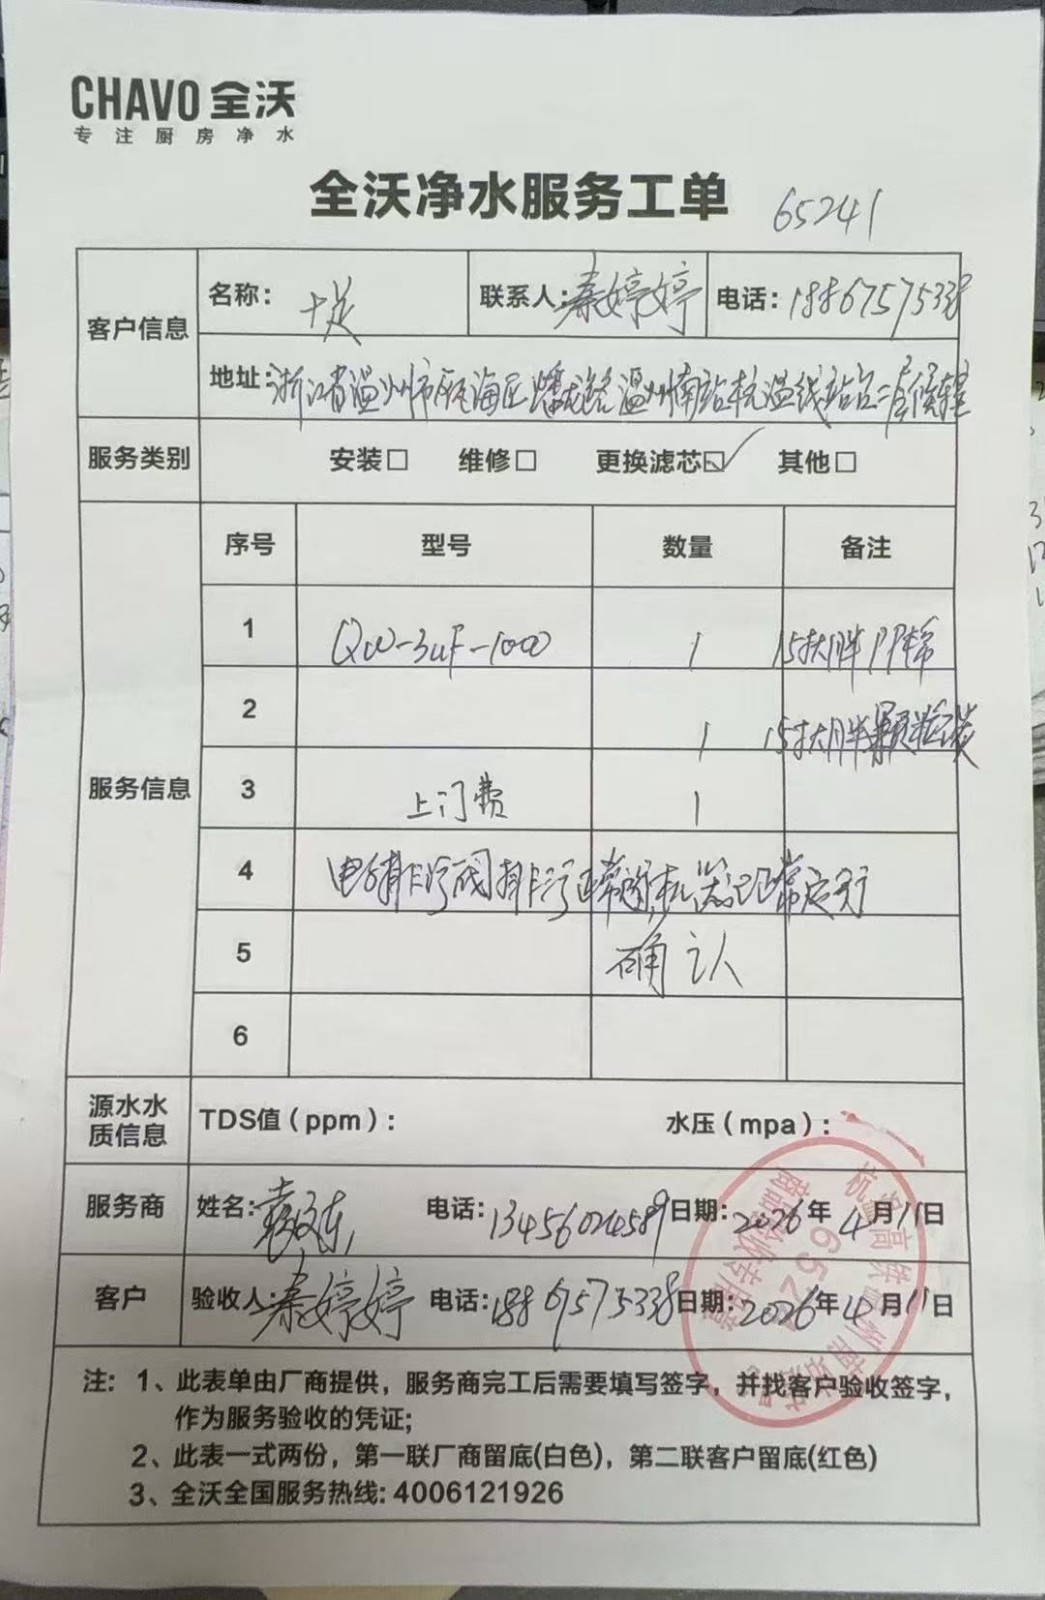 CHAVO 全沃
专注厨房净水
全沃净水服务工单 65241
客户信息 名称: 十足 联系人: 秦婷婷 电话: 18867575338
地址: 浙江省温州市瓯海区蟠龙路温州南站杭温线站台二层候车室
服务类别 安装□ 维修□ 更换滤芯☑ 其他□
服务信息 序号 型号 数量 备注
1 QW-3UF-1000 1 15寸大胖PP棉
2 1 15寸大胖颗粒炭
3 上门费 1
4 电磁排污阀排污正常,机器已正常运行
5 确认
6
源水水质信息 TDS值(ppm): 水压(mpa):
服务商 姓名: 电话: 13456024589 日期: 2026年4月11日
客户 验收人: 秦婷婷 电话: 18867575338 日期: 2026年4月11日
注: 1、此表单由厂商提供,服务商完工后需要填写签字,并找客户验收签字,
作为服务验收的凭证;
2、此表一式两份,第一联厂商留底(白色),第二联客户留底(红色)
3、全沃全国服务热线: 4006121926